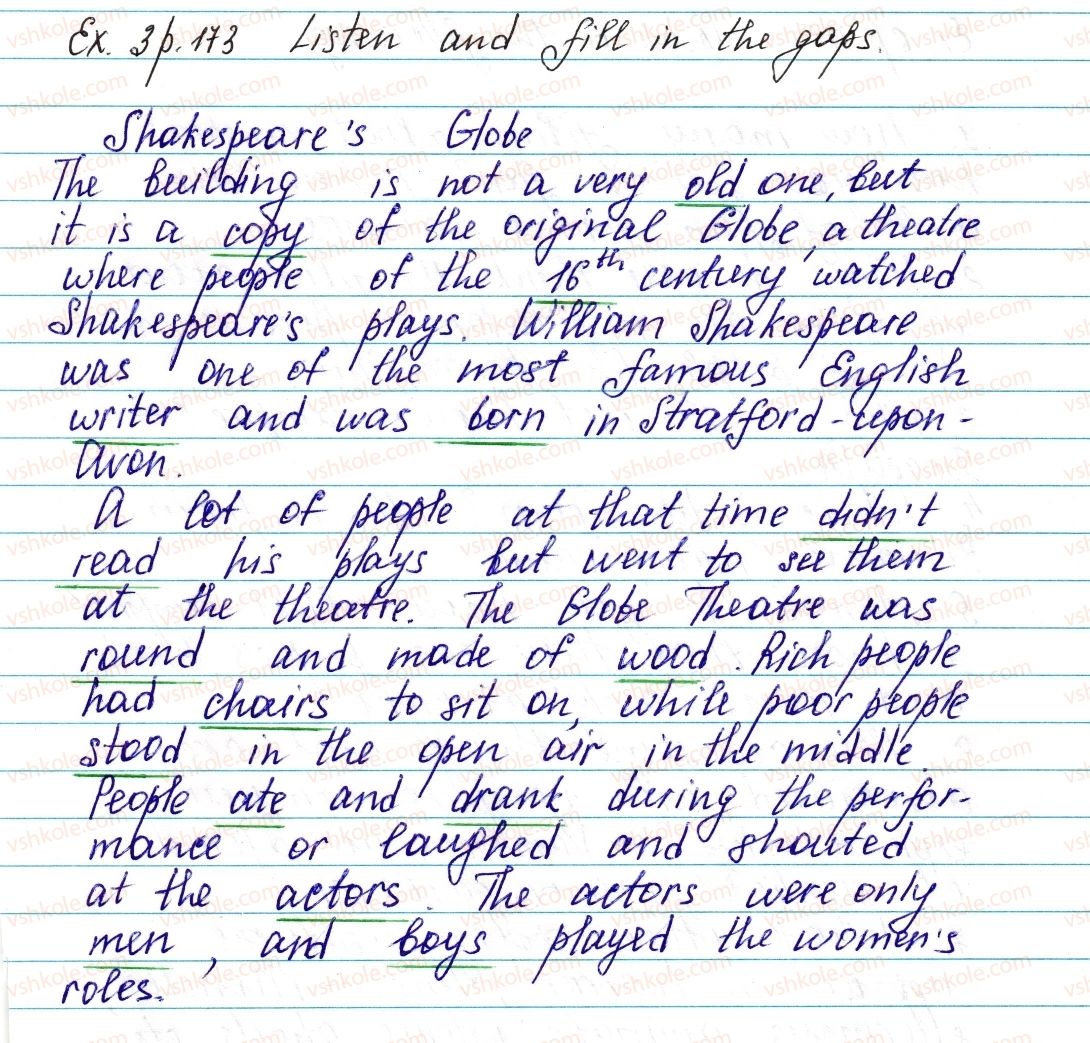 Ex. 3 p. 173 Listen and fill in the gaps.
Shakespeare's Globe
The building is not a very old one, but
it is a copy of the original Globe, a theatre
where people of the 16th century watched
Shakespeare's plays. William Shakespeare
was one of the most famous English
writer and was born in Stratford-upon-
Avon.
A lot of people at that time didn't
read his plays but went to see them
at the theatre. The Globe Theatre was
round and made of wood. Rich people
had chairs to sit on, while poor people
stood in the open air in the middle.
People ate and drank during the perfor-
mance or laughed and shouted
at the actors. The actors were only
men, and boys played the women's
roles.
vshkole.com